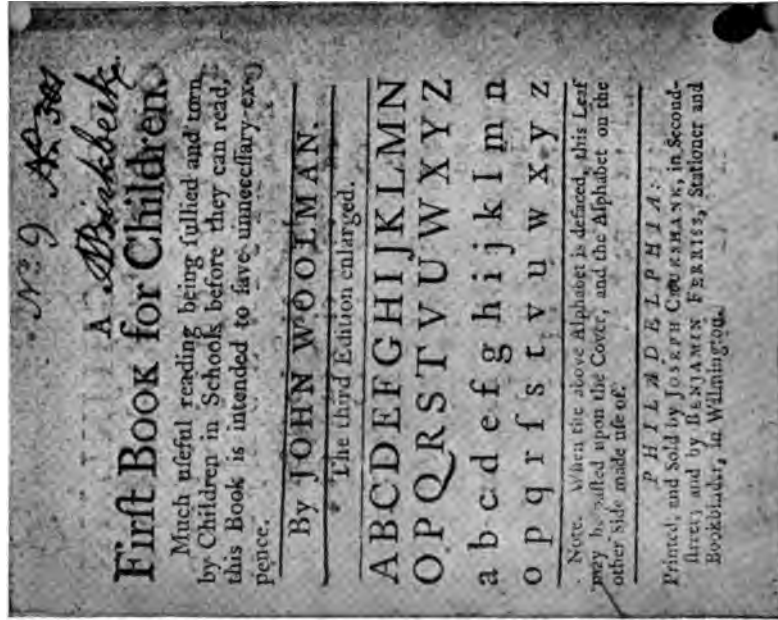 No 9
A
Firſt Book for Children.
Much uſeful reading being ſullied and torn
by Children in Schools before they can read,
this Book is intended to ſave unneceſſary ex-
pence.
By JOHN WOOLMAN.
The third Edition enlarged.
ABCDEFGHIJKLMN
OPQRSTVUWXYZ
a b c d e f g h i j k l m n
o p q r ſ s t v u w x y z
Note. When the above Alphabet is defaced, this Leaf
may be paſted upon the Cover, and the Alphabet on the
other ſide made uſe of.
PHILADELPHIA:
Printed, and Sold by JOSEPH CRUKSHANK, in Second-
ſtreet; and by BENJAMIN FERRISS, Stationer and
Bookbinder, in Wilmington.